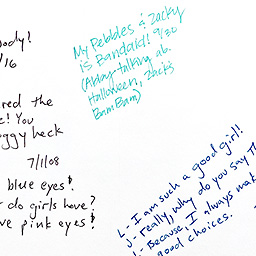 ody!
/16
red the
e! You
ggy heck
7/1/08
blue eyes?
do girls have?
ve pink eyes?
My Pebbles & Zacky
is Bandaid! 9/30
(Abby talking ab.
Halloween, Zack's
BamBam)
L- I am such a good girl!
J- really, why do you say Th
L- Because, I always mak
good choices.